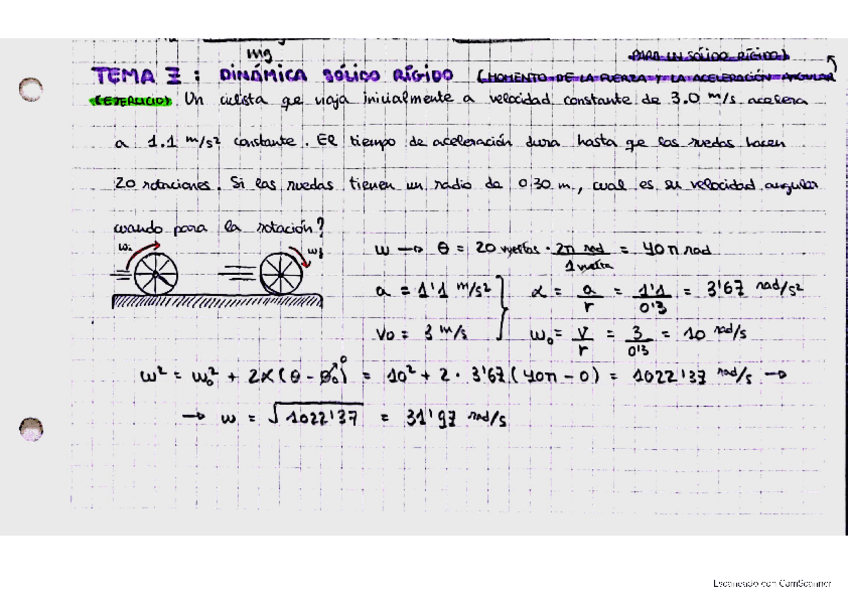 mg
PARA UN SÓLIDO RÍGIDO)
TEMA 7: DINÁMICA SÓLIDO RÍGIDO (MOMENTO DE LA FUERZA Y LA ACELERACIÓN ANGULAR
(EJERCICIO) Un ciclista que viaja inicialmente a velocidad constante de 3.0 m/s acelera
a 1.1 m/s² constante. El tiempo de aceleración dura hasta que las ruedas hacen
20 rotaciones. Si las ruedas tienen un radio de 0.30 m., cual es su velocidad angular
cuando para la rotación?
ω₀ ωf
ω → θ = 20 vueltas · 2π rad / 1 vuelta = 40π rad
a = 1'1 m/s² α = a/r = 1'1/0'3 = 3'67 rad/s²
V₀ = 3 m/s ω₀ = V/r = 3/0'3 = 10 rad/s
ω² = ω₀² + 2α(θ - θ₀)⁰ = 10² + 2 · 3'67(40π - 0) = 1022'37 rad/s →
→ ω = √1022'37 = 31'97 rad/s
Escaneado con CamScanner